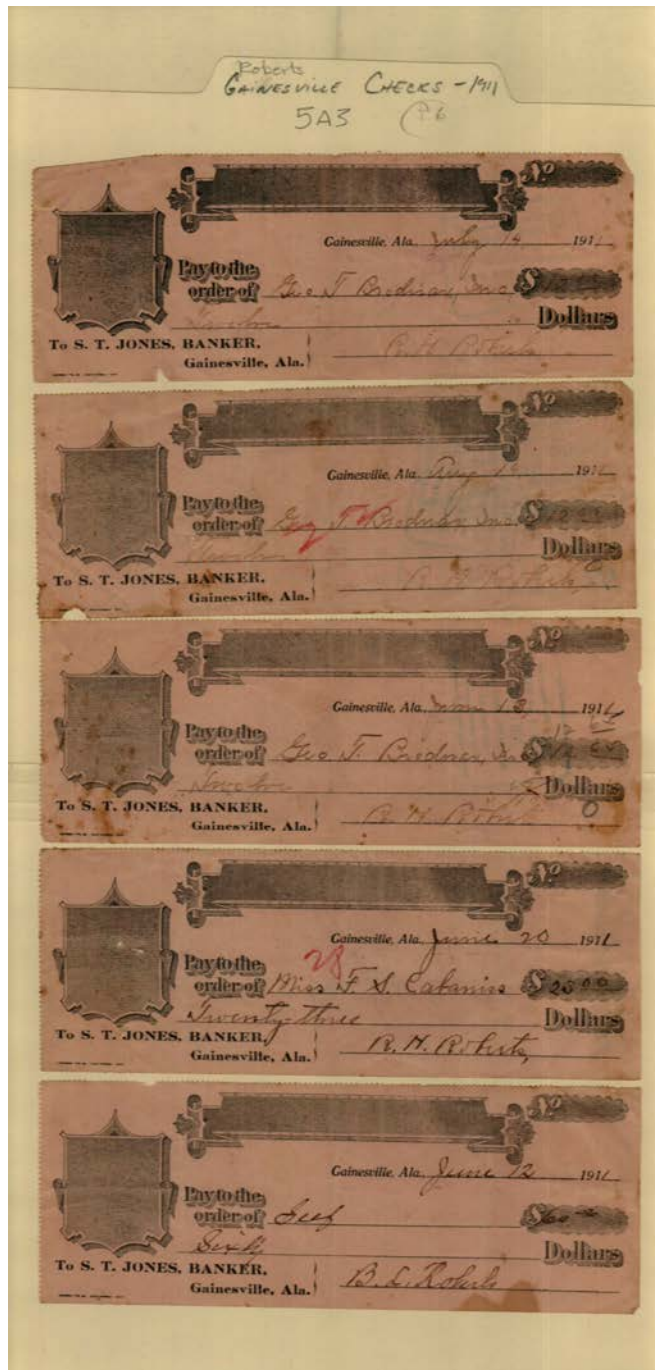 Roberts
GAINESVILLE CHECKS - 1911
5A3
No
Gainesville, Ala. July 14 1911
Pay to the
order of Geo T Brodnax, Inc $ 12
Twelve Dollars
To S. T. JONES, BANKER,
Gainesville, Ala.
R. H. Roberts
No
Gainesville, Ala. Aug 1911
Pay to the
order of Geo T Brodnax, Inc $ 12
Dollars
To S. T. JONES, BANKER,
Gainesville, Ala.
R H Roberts
No
Gainesville, Ala. 13, 1911
Pay to the
order of Geo T. Brodnax, Inc $ 12
Twelve Dollars
To S. T. JONES, BANKER,
Gainesville, Ala.
R. H. Roberts
No
Gainesville, Ala. June 20 1911
Pay to the
order of Miss F. S. Cabaniss $
Twenty three Dollars
To S. T. JONES, BANKER,
Gainesville, Ala.
R. H. Roberts,
No
Gainesville, Ala. June 12 1911
Pay to the
order of Self $ 60
Sixty Dollars
To S. T. JONES, BANKER,
Gainesville, Ala.
B. L. Roberts